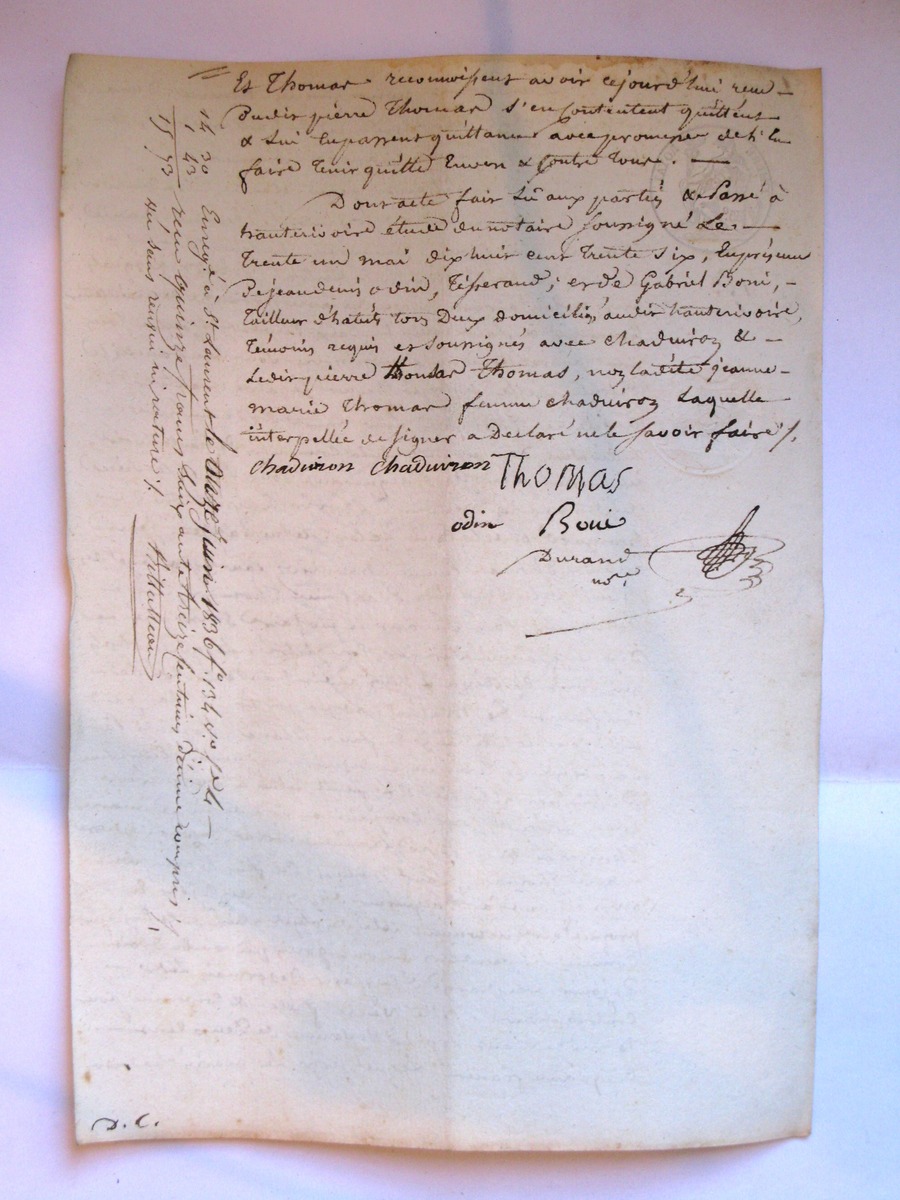 Et Thomas reconnoissent avoir cejourd'hui reçu
Dudit pierre Thomas s'en Contentent quittent
& Lui en passent quittance avec promesse de l'en
faire Tenir quitte Envers & Contre Tous. —
Dont acte fait Lu aux parties & Passé à
hauterivoire étude du notaire soussigné Le —
Trente un mai dix huit cent Trente Six, En présence
De jean denis odin, Tisserand; et de Gabriel Boni, -
Tailleur d'habits tous Deux domiciliés audit hauterivoire,
Témoins requis et soussignés avec chaduiron & -
Ledit pierre Thomas, non ladite jeanne-
marie Thomas femme chaduiron Laquelle
interpellée de signer a Déclaré ne le savoir faire /.
chaduiron chaduiron Thomas
odin Boni
Durand
nore
14 30 Enregé à St Laurent le onze juin 1836 fo. 134 vo. Ce 4 —
1,43 reçu quinze francs soixante treize centimes, dixme compris /.
15 73 Vu sans renvoi ni rature /.
D.C.